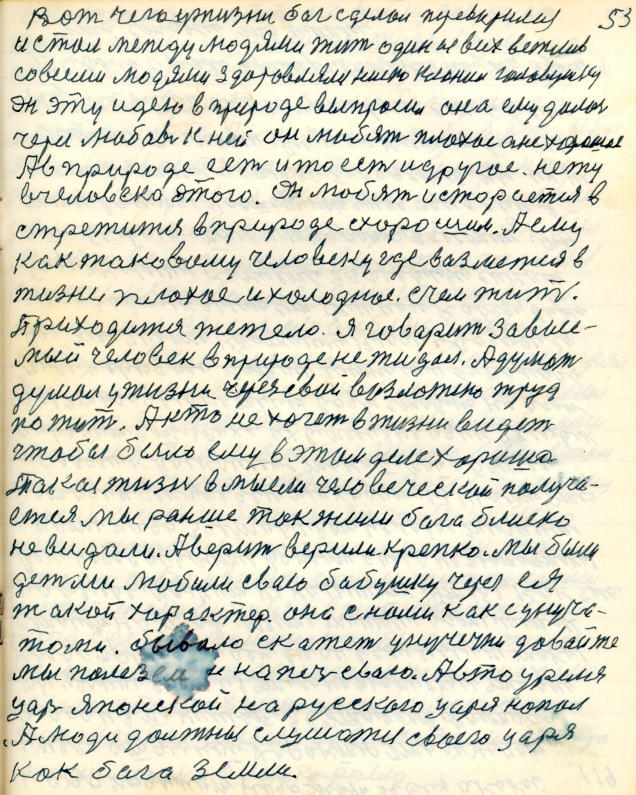 53
Вот чего у жизни бог сделал превирился
и стал между людями жит один из всих вежлив
совсеми людями здоровляли низко клонил головушку
Он эту идею в природе выпросил она ему дала
через любов к ней он любят плохое а не хорошое
А в природе ест и то ест и другое. нету
в человека этого. Он любят и сторается в
стретится в природе схорошим. А ему
как таковому человеку где вазметея в
жизни плохое и холодное. с чем жит.
Приходится жежело. Я говарит завис-
мый человек в природе не жидал. А думат
думал у жизни через свой возложено труд
пожит. А кто не хочет в жизни видет
чтобы было ему в этом деле хорошо
Такая жизн в мысли человеческой получа-
ется мы ранше так жили бога блиско
не видали. А верит верили крепко. Мы были
детями любили сваю бабушку через ея
такой характер. она снами как с унуча-
тами. бывало скажет унучечки давайте
мы полезем и на печ сваю. А в то уремя
цар японской на русского царя напал
А люди должны слушатя своего царя
как бога земли.